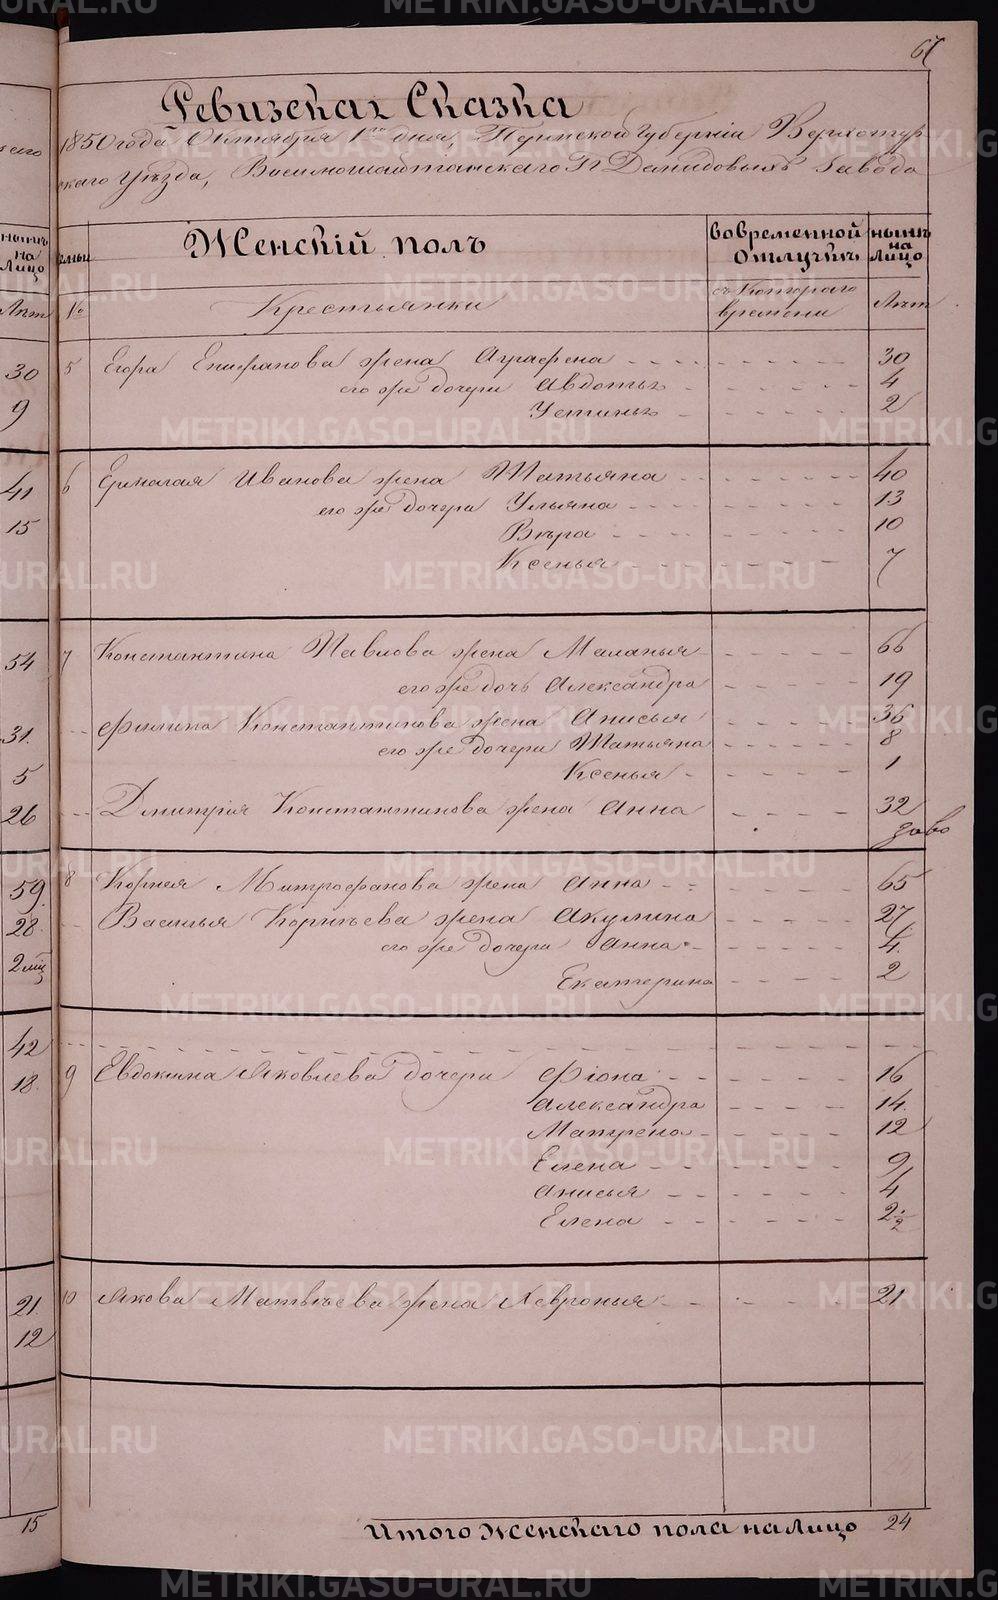 67
Ревизская Сказка
1850 года Октября 1го дня, Пермской Губерніи Верхотур
скаго Уѣзда, Висимошайтанскаго Гг Демидовыхъ Завода
нынѣ на Лицо
Женскій полъ
Во временной Отлучкѣ
нынѣ на Лицо
Лѣт
Крестьянки
съ Котораго времени
Лѣт
30 5 Егора Епифанова жена Аграфена 30
его же дочери Авдотья 4
9 Устинья 2
41 6 Ермалая Иванова жена Татьяна 40
его же дочери Ульяна 13
15 Вѣра 10
Ксенья 7
54 7 Константина Павлова жена Маланья 66
его же дочь Александра 19
31. Филипа Константинова жена Анисья 36
его же дочери Татьяна 8
5 Ксенья 1
26 Дмитрія Константинова жена Анна 32
59. 8 Корнея Митрофанова жена Анна 65
28 Василья Корнѣева жена Акулина 27
его же дочери Анна 4.
2 мц Екатерина 2
42
18. 9 Евдокима Яковлева дочери Фіона 16
Александра 14.
Матрена 12
Елена 9
Анисья 4
Елена 2 1/2
21 10 Якова Матвѣева жена Хевронья 21
12
15 Итого Женскаго пола на Лицо 24
METRIKI.GASO-URAL.RU